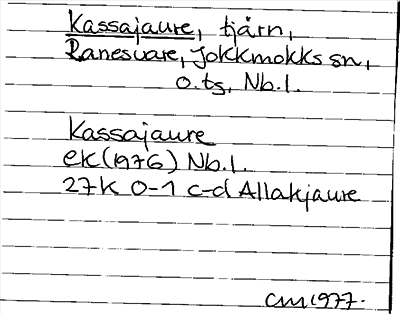 Kassajaure, tjärn,
Ranesvare, Jokkmokks sn,
o. ts, Nb.l.
Kassajaure
ek(1976) Nb.l.
27K 0-1 c-d Allakjaure
CM 1977.